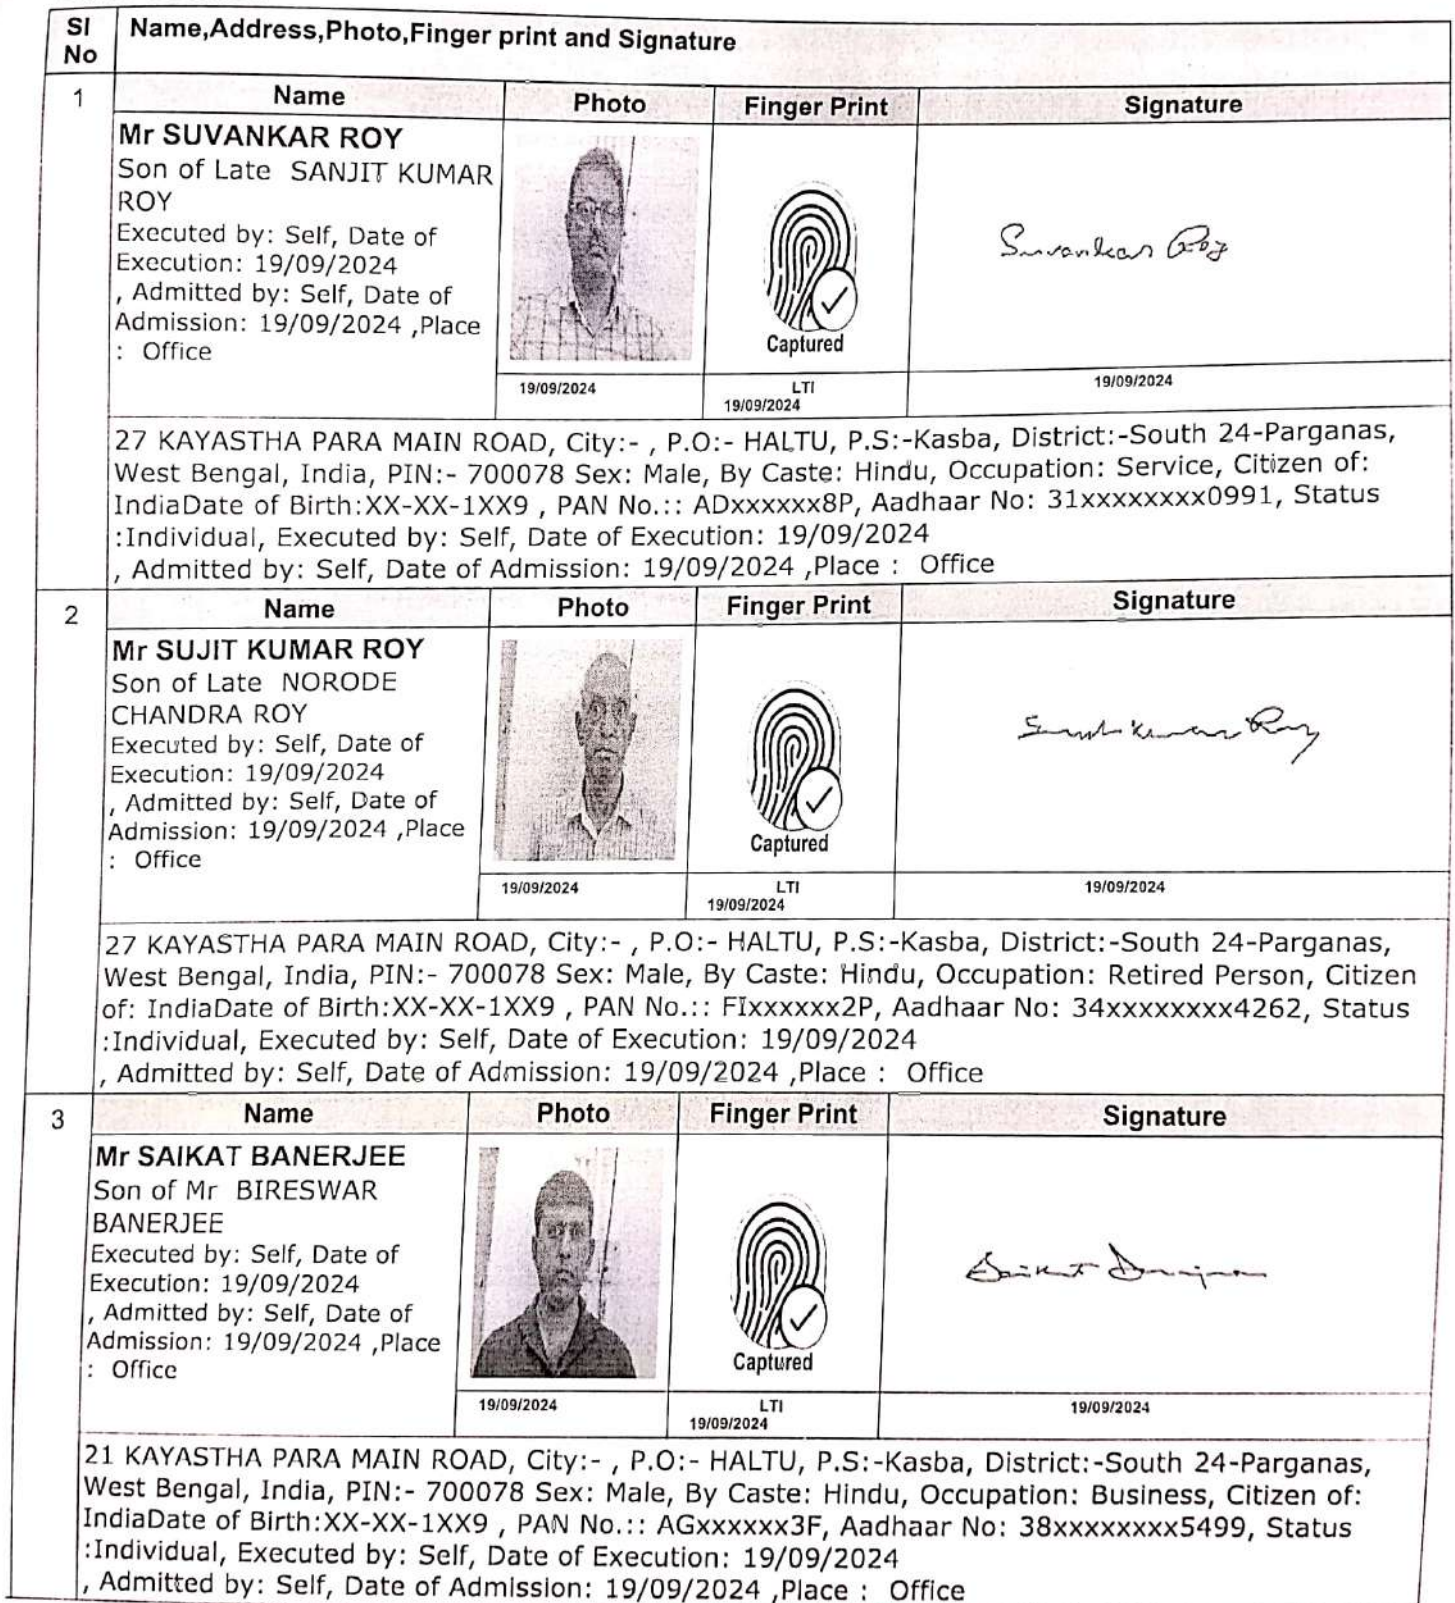 Sl No
Name,Address,Photo,Finger print and Signature
1
Name
Photo
Finger Print
Signature
Mr SUVANKAR ROY
Son of Late SANJIT KUMAR
ROY
Executed by: Self, Date of
Execution: 19/09/2024
, Admitted by: Self, Date of
Admission: 19/09/2024 ,Place
: Office
Captured
Suvankar Roy
19/09/2024
LTI
19/09/2024
19/09/2024
27 KAYASTHA PARA MAIN ROAD, City:- , P.O:- HALTU, P.S:-Kasba, District:-South 24-Parganas,
West Bengal, India, PIN:- 700078 Sex: Male, By Caste: Hindu, Occupation: Service, Citizen of:
IndiaDate of Birth:XX-XX-1XX9 , PAN No.:: ADxxxxxx8P, Aadhaar No: 31xxxxxxxx0991, Status
:Individual, Executed by: Self, Date of Execution: 19/09/2024
, Admitted by: Self, Date of Admission: 19/09/2024 ,Place : Office
2
Name
Photo
Finger Print
Signature
Mr SUJIT KUMAR ROY
Son of Late NORODE
CHANDRA ROY
Executed by: Self, Date of
Execution: 19/09/2024
, Admitted by: Self, Date of
Admission: 19/09/2024 ,Place
: Office
Captured
Sujit Kumar Roy
19/09/2024
LTI
19/09/2024
19/09/2024
27 KAYASTHA PARA MAIN ROAD, City:- , P.O:- HALTU, P.S:-Kasba, District:-South 24-Parganas,
West Bengal, India, PIN:- 700078 Sex: Male, By Caste: Hindu, Occupation: Retired Person, Citizen
of: IndiaDate of Birth:XX-XX-1XX9 , PAN No.:: FIxxxxxx2P, Aadhaar No: 34xxxxxxxx4262, Status
:Individual, Executed by: Self, Date of Execution: 19/09/2024
, Admitted by: Self, Date of Admission: 19/09/2024 ,Place : Office
3
Name
Photo
Finger Print
Signature
Mr SAIKAT BANERJEE
Son of Mr BIRESWAR
BANERJEE
Executed by: Self, Date of
Execution: 19/09/2024
, Admitted by: Self, Date of
Admission: 19/09/2024 ,Place
: Office
Captured
Saikat Banerjee
19/09/2024
LTI
19/09/2024
19/09/2024
21 KAYASTHA PARA MAIN ROAD, City:- , P.O:- HALTU, P.S:-Kasba, District:-South 24-Parganas,
West Bengal, India, PIN:- 700078 Sex: Male, By Caste: Hindu, Occupation: Business, Citizen of:
IndiaDate of Birth:XX-XX-1XX9 , PAN No.:: AGxxxxxx3F, Aadhaar No: 38xxxxxxxx5499, Status
:Individual, Executed by: Self, Date of Execution: 19/09/2024
, Admitted by: Self, Date of Admission: 19/09/2024 ,Place : Office